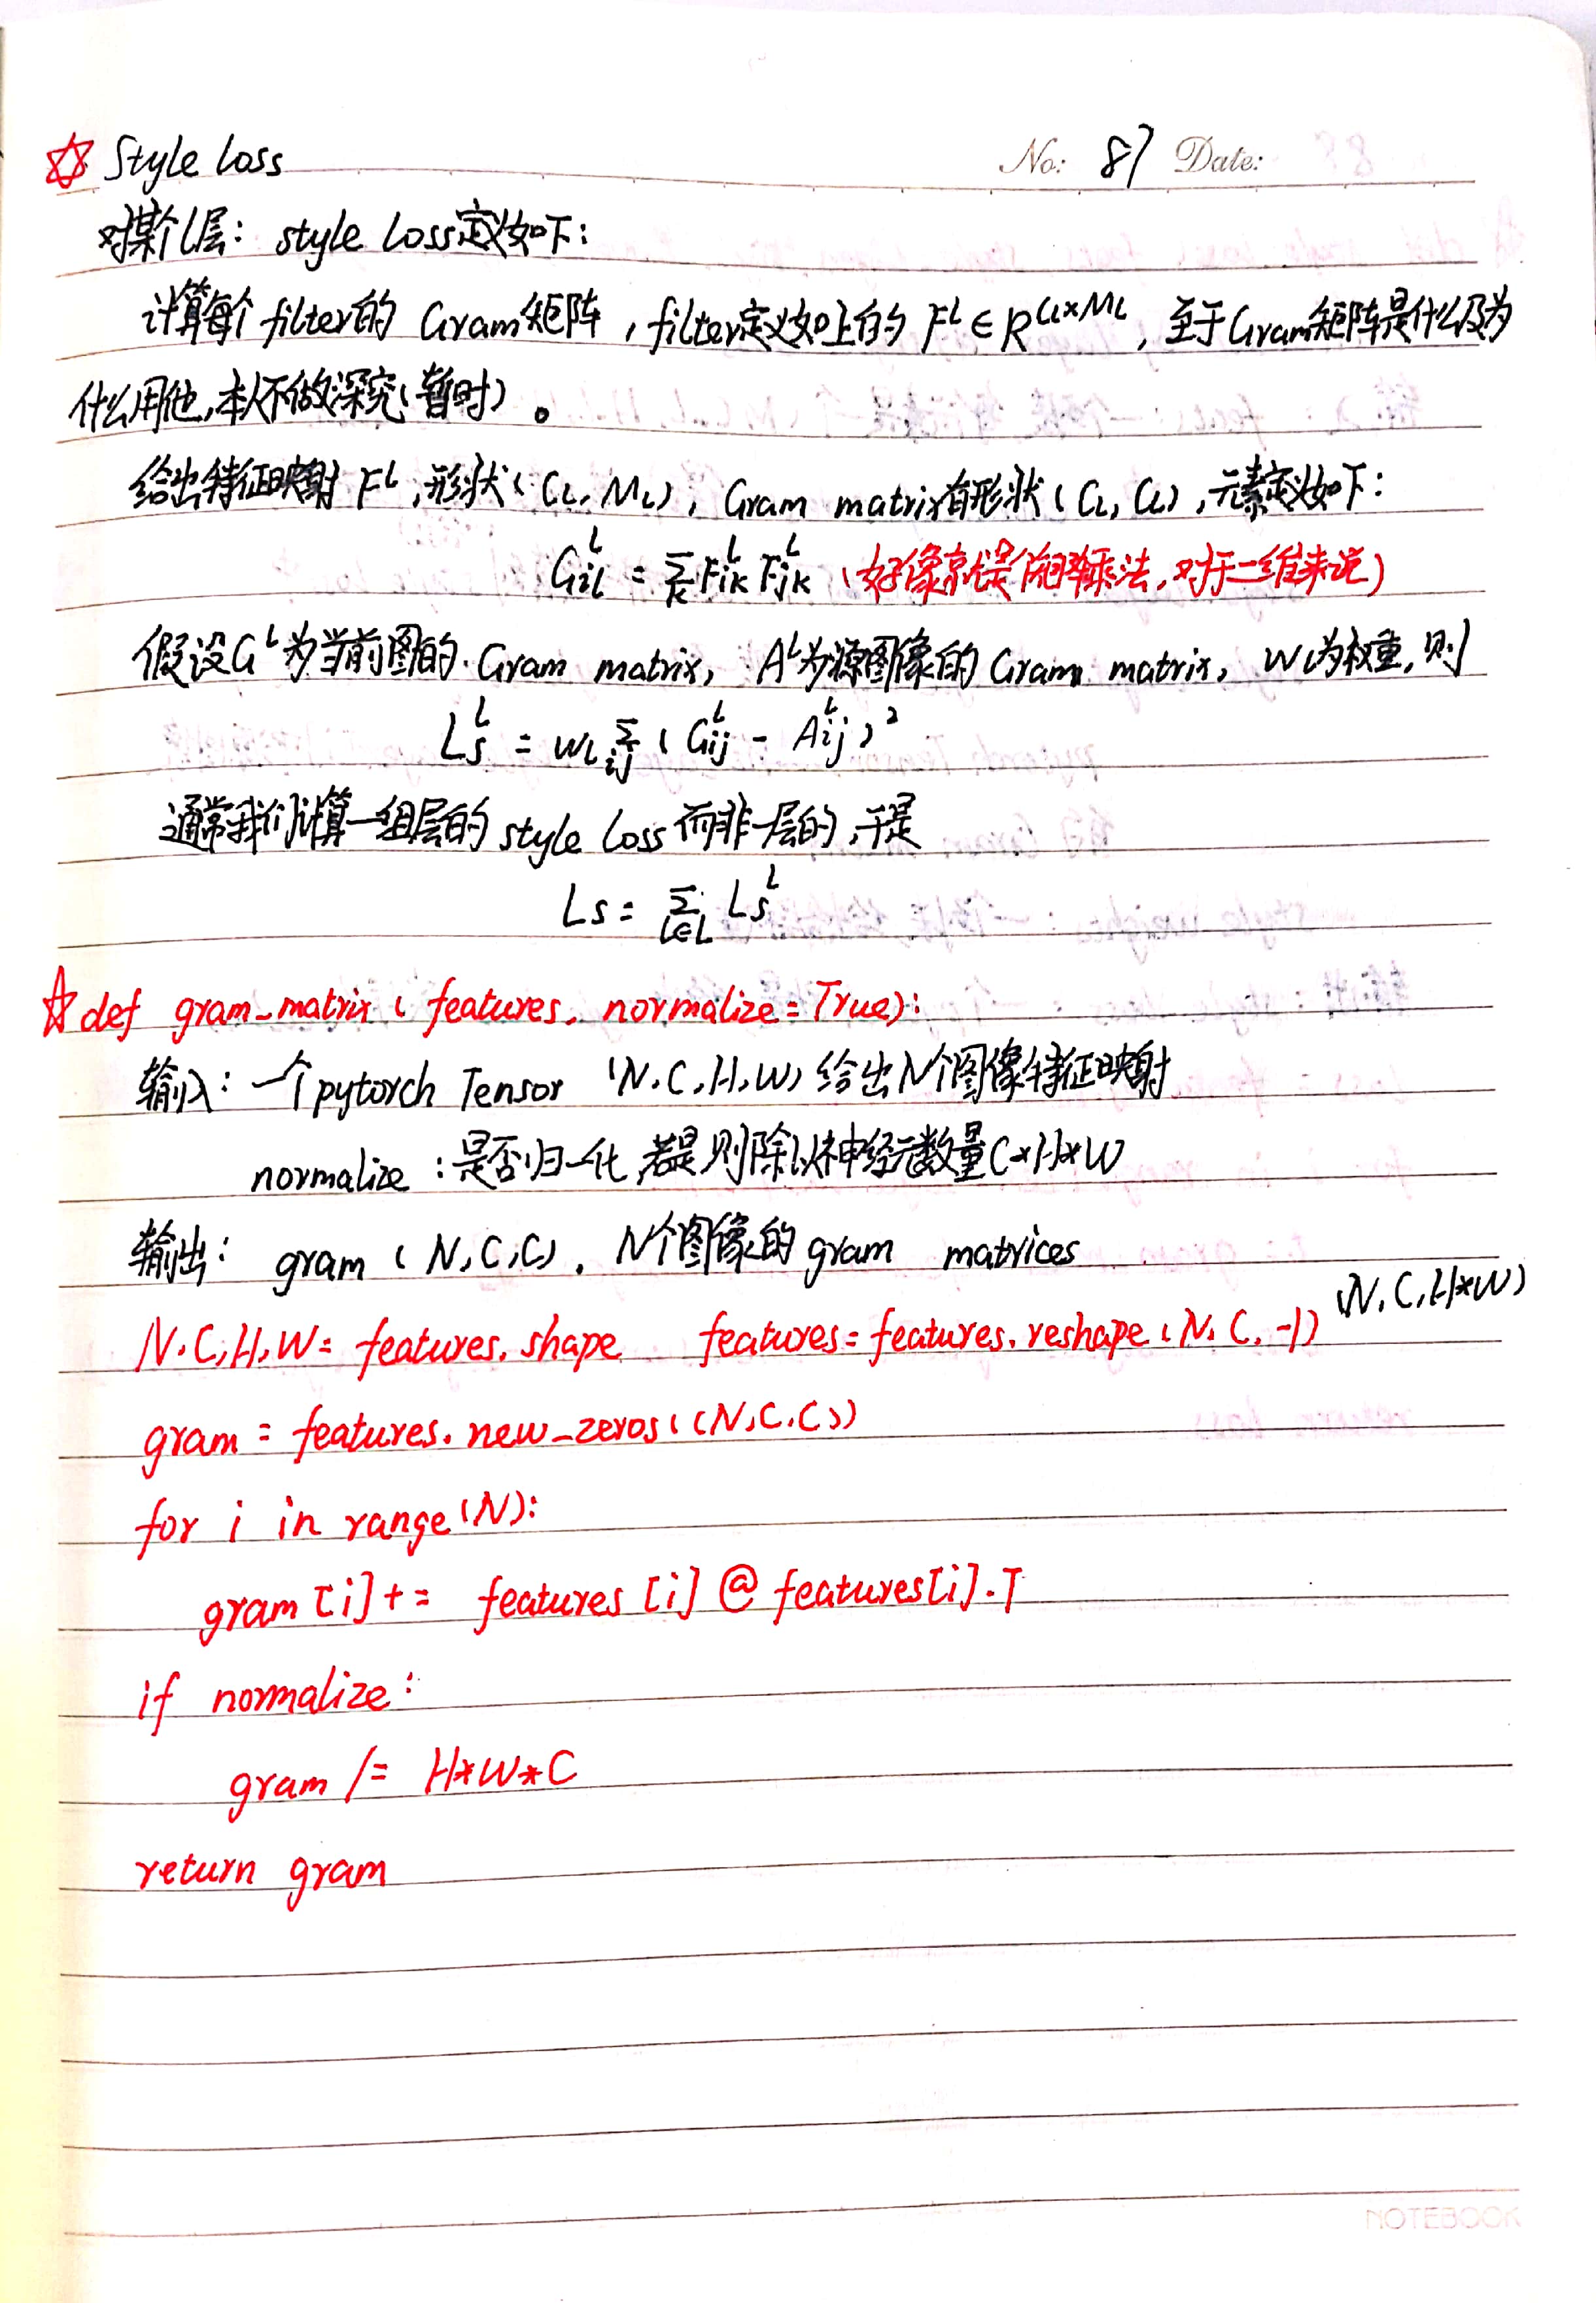 ☆ Style loss No: 87 Date:
对某个l层: style loss定义如下:
计算每个filter的 Gram矩阵, filter定义如上的 F^l ∈ R^{C_l×M_l}, 至于Gram矩阵是什么及为
什么用他,本人不做深究(暂时)。
给出特征映射 F^l, 形状(C_l, M_l), Gram matrix有形状(C_l, C_l), 元素定义如下:
G_{il}^l = Σ_k F_{ik}^l F_{jk}^l (好像就是做矩阵乘法, 对于二维来说)
假设G^l为当前图的 Gram matrix, A^l为源图像的 Gram matrix, w_l为权重, 则
L_s^l = w_l Σ_{ij} (G_{ij}^l - A_{ij}^l)^2
通常我们计算一组层的 style loss 而非一层的, 于是
L_s = Σ_{l∈L} L_s^l
☆ def gram_matrix(features, normalize=True):
输入: 一个pytorch Tensor (N,C,H,W) 给出N个图像特征映射
normalize: 是否归一化, 若是则除以神经元数量C*H*W
输出: gram (N,C,C), N个图像的 gram matrices
(N,C,H*W)
N,C,H,W = features.shape features = features.reshape(N,C,-1)
gram = features.new_zeros((N,C,C))
for i in range(N):
gram[i] += features[i] @ features[i].T
if normalize:
gram /= H*W*C
return gram
NOTEBOOK